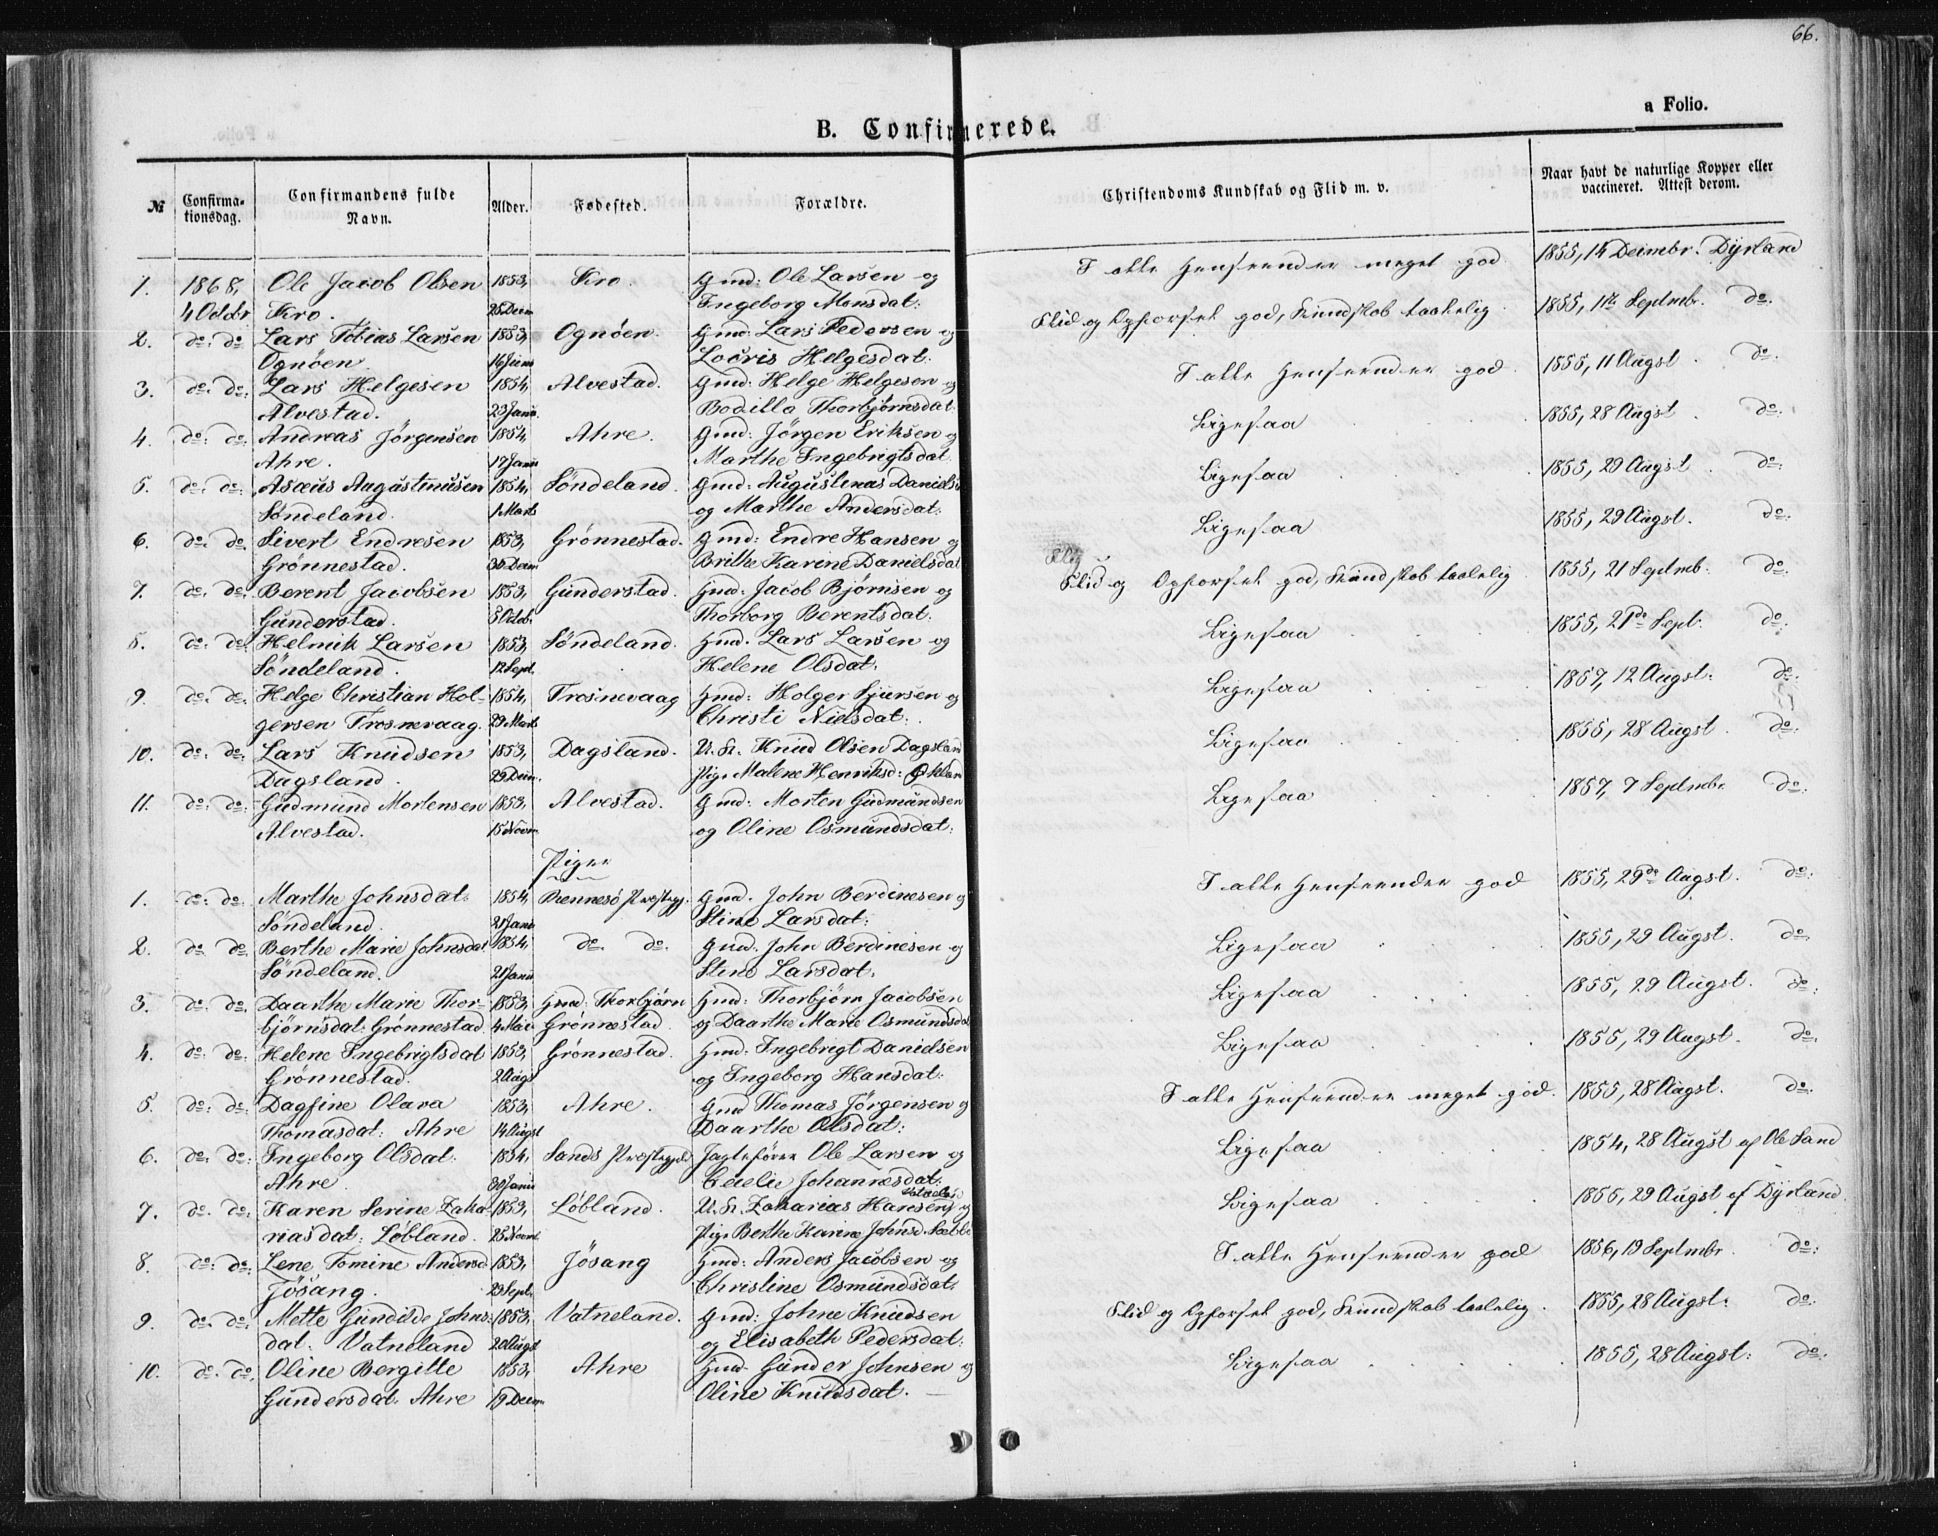 66.
a Folio.
B. Confirmerede.
№ Confirma-tionsdag. Confirmandens fulde Navn. Alder. Fødested. Forældre. Christendoms Kundskab og Flid m. v. Naar havt de naturlige Kopper eller vaccineret. Attest derom.
1. 1868, Ole Jacob Olsen 1853, Kro. Gmd: Ole Larsen og I alle Henseender meget god 1855, 14 Decembr. Dyrland
4 Octbr Kro. 25 Decm Ingeborg Monsdat:
2. do: do Lars Tobias Larsen 1853, Ognöen. Gmd: Lars Pedersen og Flid og Opførsel god, Kundskab taalelig. 1855, 11te Septmbr. do.
Ognöen. 16 Juni Locris Helgesdat:
3. do: do: Lars Helgesen 1854, Alvestad. Gmd: Helge Helgesen og I alle Henseender god. 1855, 11 Augst. do:
Alvestad. 23 Janu Bodilla Thorbjørnsdat
4. do: do: Andreas Jörgensen 1854, Ahre. Gmd: Jörgen Eriksen og Ligesaa 1855, 28 Augst. do:
Ahre. 17 Janu Marthe Ingebrigtsdat.
5. do. do: Asæus Augustinusen 1854, Söndeland. Gmd: Augustinus Daniels Ligesaa 1855, 29 Augst. do:
Söndeland. 1 Marts og Marthe Andersdat:
6. do. do. Sivert Endresen 1853, Grönnestad. Gmd: Endre Hansen og Ligesaa 1855, 29 Augst. do:
Grönnestad. 30 Decm Brithe Karine Danielsdat
7. do. do: Berent Jacobsen 1853, Gunderstad. Gmd: Jacob Bjørnsen og Flid og Opførsel god, Kundskab taalelig. 1855, 21 Septmb. do:
Gunderstad. 8 Octob. Thorborg Berentsdat.
8. do: do: Helmik Larsen 1853, Söndeland. Gmd. Lars Larsen og Ligesaa 1855, 21de Sept. do:
Söndeland. 12 Sept. Helene Olsdat:
9. do: do: Helge Christian Hol- 1854, Trosnevaag Gmd: Holger Sjursen og Ligesaa 1857, 12 Augst. do:
gersen Trosnevaag. 29 Marts Christi Nielsdat:
10. do: do: Lars Knudsen 1853, Dagsland. U. K. Knud Olsen Dagsland Ligesaa 1855, 28 Augst. do:
Dagsland. 29 Decm. Pige Malene Henriksd:
11. do: do: Gudmund Mortensen 1853, Alvestad. Gmd: Morten Gudmundsen Ligesaa 1857, 7 Septmbr. do:
Alvestad. 15 Novm og Oline Osmundsdat:
Piger
1. do: do: Marthe Johnsdat: 1854, Rennesö Præstegj. Gmd. John Berdinesen og I alle Henseender god 1855, 29de Augst. do:
Söndeland. 21 Janu Stine Larsdat:
2. do do. Berthe Marie Johnsdat 1854, do. do. Gmd. John Berdinesen og Ligesaa 1855, 29 Augst. do:
Söndeland. 21 Janu Stine Larsdat.
3. do: do: Daarthe Marie Thor- 1853, Gmd: Thorbjörn Gmd: Thorbjörn Jacobsen Ligesaa 1855, 29 Augst. do:
björnsdat: Grönnestad 4 Mai Grönnestad. og Daarthe Marie Osmundsdat
4. do: do: Helene Ingebrigtsdat 1853, Grönnestad. Gmd: Ingebrigt Danielsen Ligesaa 1855, 29 Augst. do.
Grönnestad. 2 Augst og Ingeborg Hansdat:
5. do: do: Dagfine Olava 1853, Ahre. Gmd Thomas Jörgensen og I alle Henseender meget god. 1855, 28 Augst. do:
Thomasdat: Ahre 14 Augst Daarthe Olsdat:
6. do. do: Ingeborg Olsdat. 1854, Sands Præstegjeld Jagtefører Ole Larsen og Ligesaa 1854, 28 Augst af Ole Sand
Ahre. 30 Janu Cecelie Johannesdat:
7. do. do: Karen Serine Zaka- 1853, Löbland. U. K. Zakarias Hansen og Ligesaa 1855, 29 Augst af Dyrland.
riasdat: Löbland. 25 Novm. Pige Berthe Karine Johnsd
8. do: do: Lene Tomine Andersd 1853, Jösang Gmd: Anders Jacobsen og I alle Henseender god 1856, 19 Septmbr. do:
Jösang. 29 Sept. Christine Osmundsdat:
9. do. do: Mette Gundilde Johns- 1853, Vatneland. Gmd: Johne Knudsen Flid og Opførsel god, Kundskab taalelig. 1855, 28 Augst: do:
dat: Vatneland 20 Augst og Elisabeth Pedersdat:
10. do. do. Oline Bergitte 1853, Ahre Gmd. Gunder Johnsen og Ligesaa 1855, 28 Augst: do:
Gundersdat. Ahre 19 Decm. Oline Knudsdat.